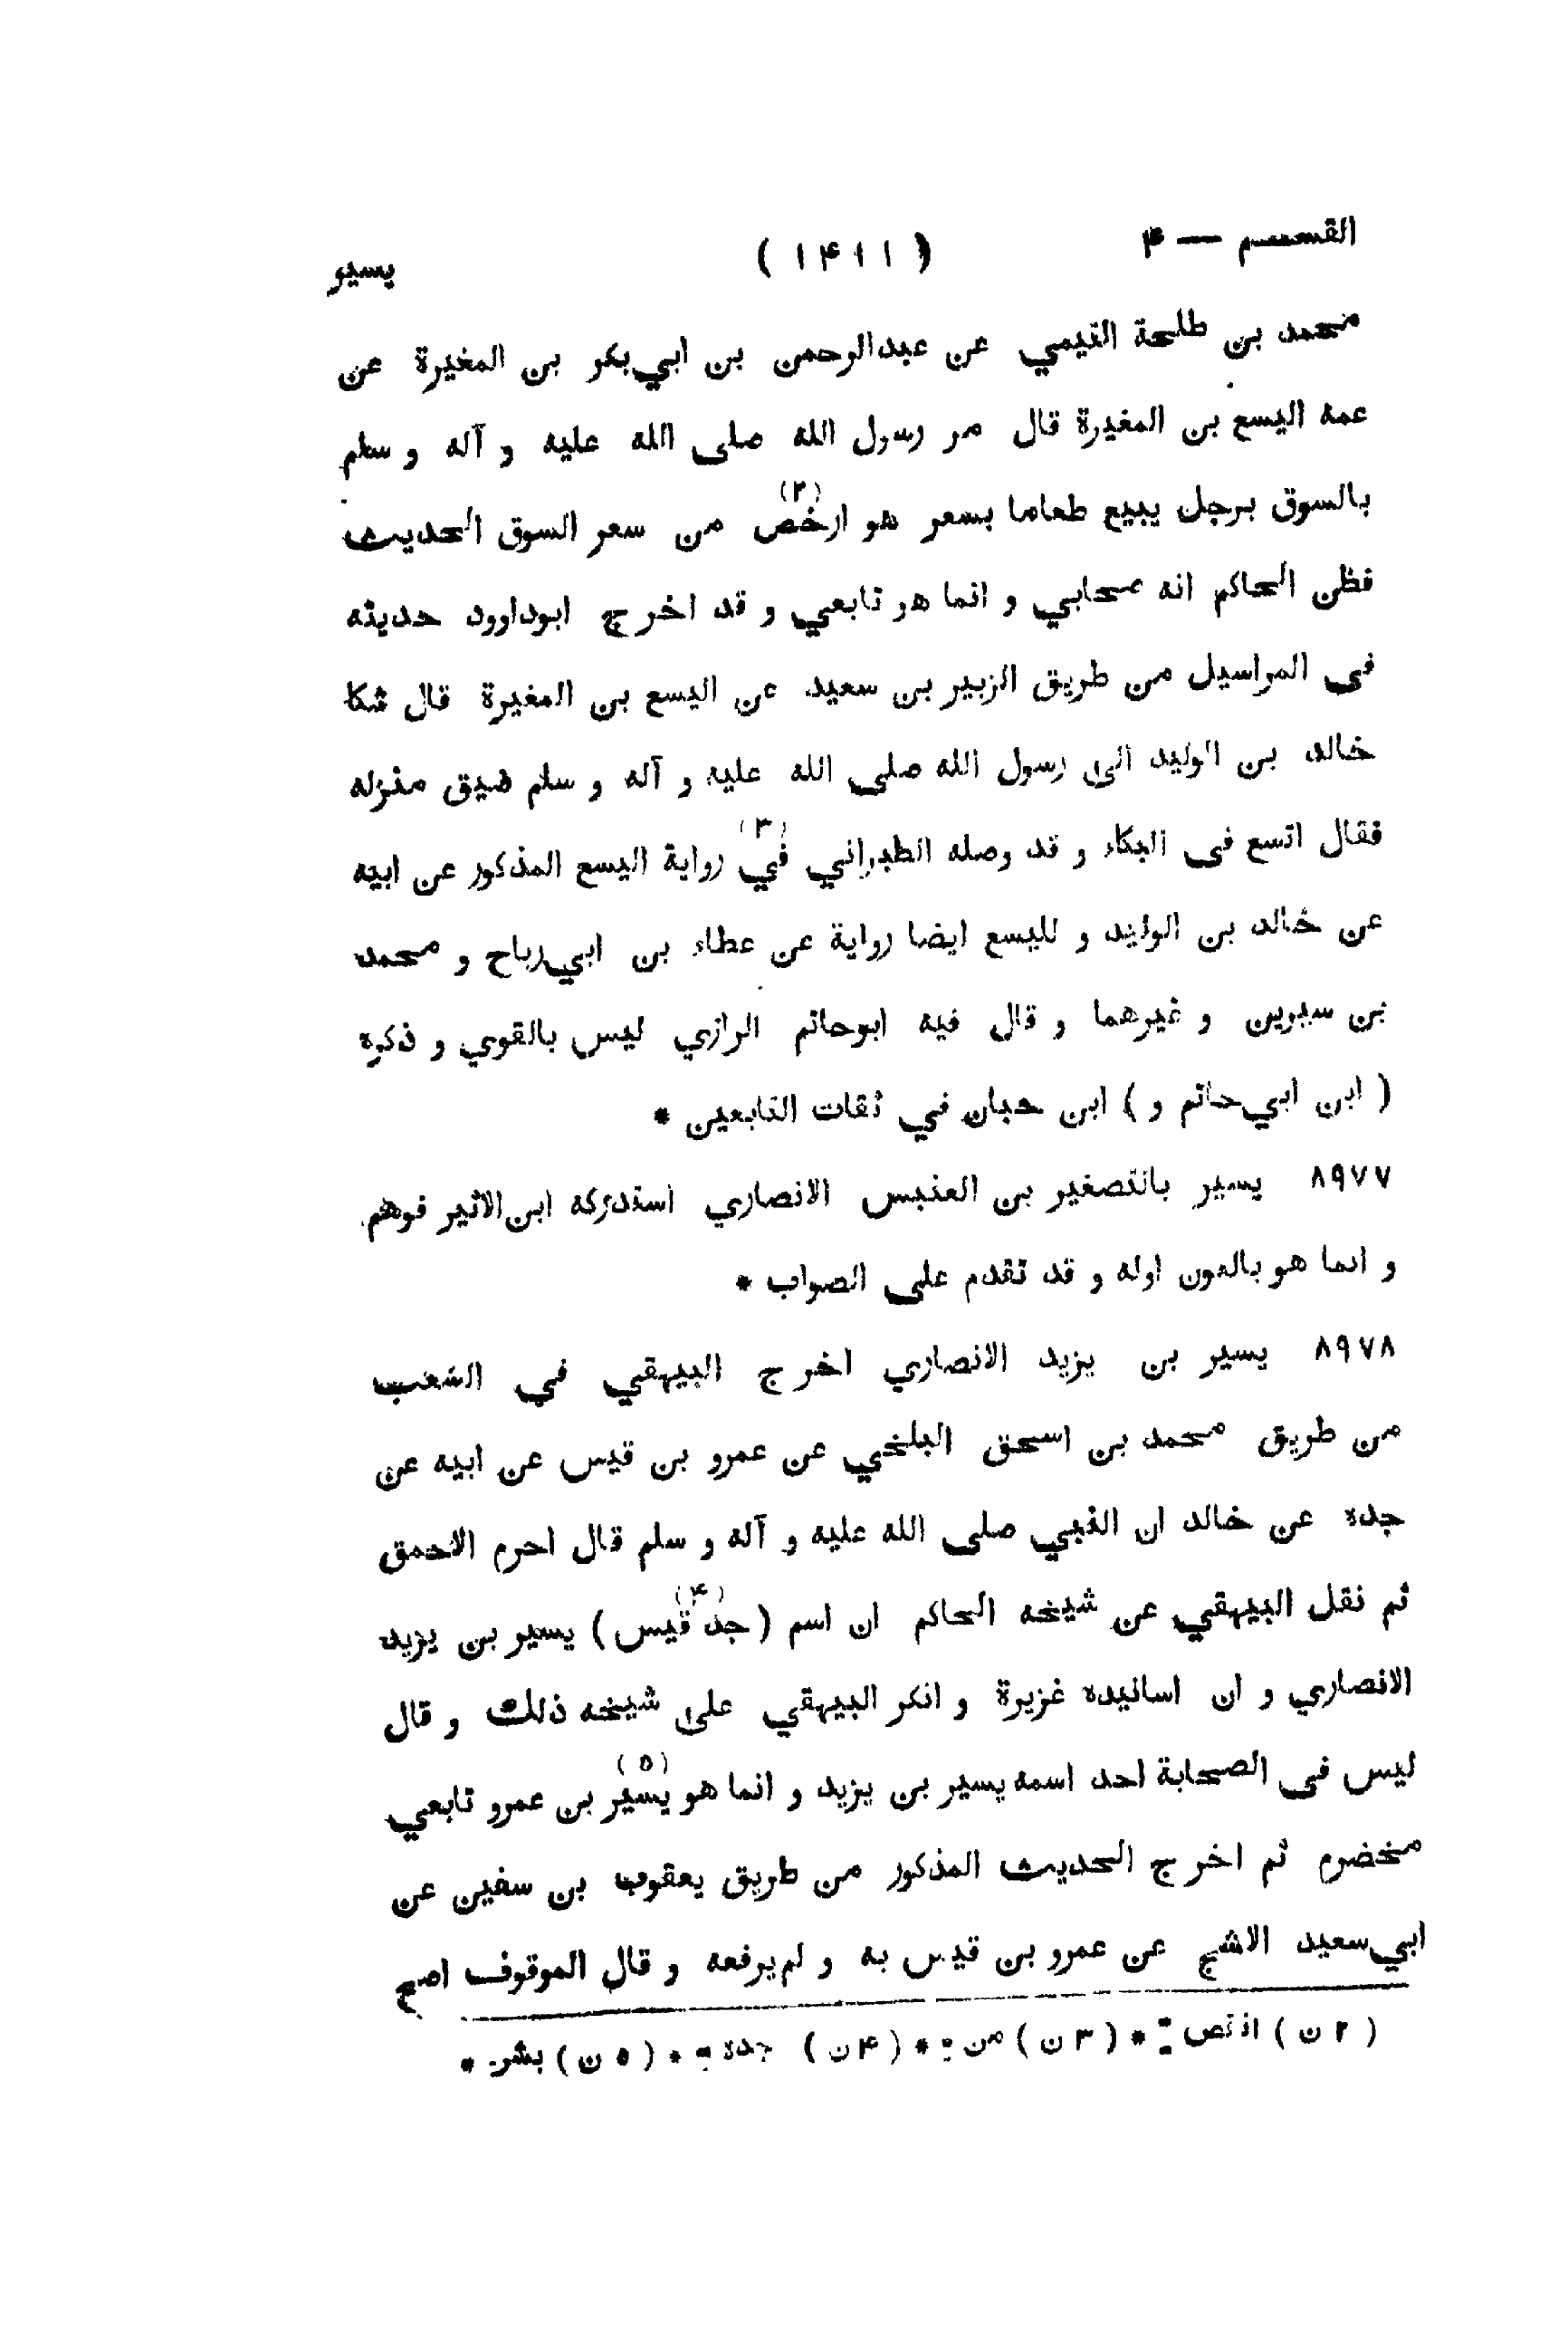 القسم — ۴ ( ۱۴۱۱ ) يسير
محمد بن طلحة التيمي عن عبدالرحمن بن ابي‌بكر بن المغيرة عن
عمه اليسع بن المغيرة قال مر رسول الله صلى الله عليه و آله و سلم
بالسوق برجل يبيع طعاما بسعر هو ارخص (۲) من سعر السوق الحديث
فظن الحاكم انه صحابي و انما هو تابعي و قد اخرج ابوداوود حديثه
فى المراسيل من طريق الزبير بن سعيد عن اليسع بن المغيرة قال شكا
خالد بن الوليد الى رسول الله صلى الله عليه و آله و سلم ضيق منزله
فقال اتسع فى البكاء و قد وصله الطبراني في (۳) رواية اليسع المذكور عن ابيه
عن خالد بن الوليد و لليسع ايضا رواية عن عطاء بن ابي‌رباح و محمد
بن سيرين و غيرهما و قال فيه ابوحاتم الرازي ليس بالقوي و ذكره
( ابن ابي‌حاتم و ) ابن حبان في ثقات التابعين *
۸۹۷۷ يسير بالتصغير بن العنبس الانصاري استدركه ابن الاثير فوهم
و انما هو بالنون اوله و قد تقدم على الصواب *
۸۹۷۸ يسير بن يزيد الانصاري اخرج البيهقي في الشعب
من طريق محمد بن اسحق البلخي عن عمرو بن قيس عن ابيه عن
جده عن خالد ان النبي صلى الله عليه و آله و سلم قال احرم الاحمق
ثم نقل البيهقي عن شيخه الحاكم ان اسم ( جد (۴) قيس ) يسير بن يزيد
الانصاري و ان اسانيده غزيرة و انكر البيهقي على شيخه ذلك و قال
ليس فى الصحابة احد اسمه يسير بن يزيد و انما هو يسير (۵) بن عمرو تابعي
مخضرم ثم اخرج الحديث المذكور من طريق يعقوب بن سفين عن
ابي‌سعيد الاشج عن عمرو بن قيس به و لم يرفعه و قال الموقوف اصح
( ۲ ن ) * ( ۳ ن ) من * ( ۴ ن ) جده * ( ۵ ن ) بشر *